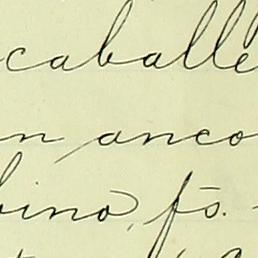 caballe
n anco
bino, fō.